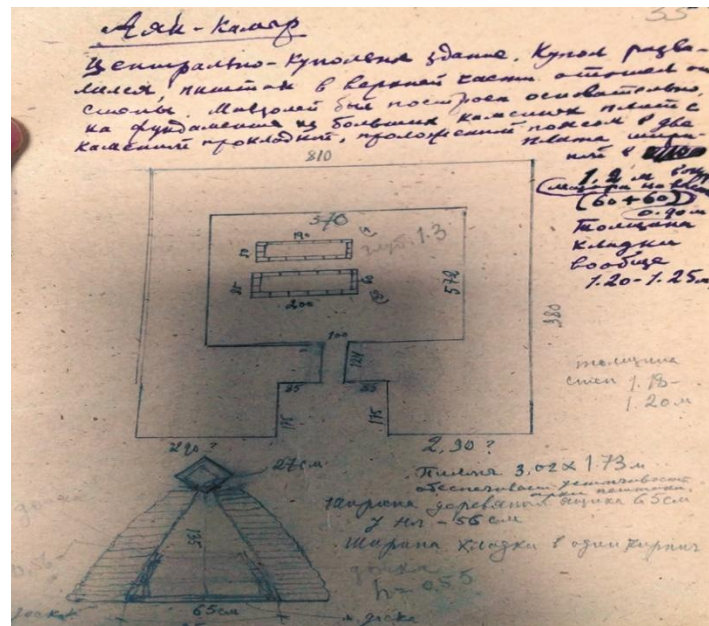 Аяк-Камыр
Центрально-купольное здание. Купол разва-
лился, пештак в верхней части отошел от
стены. Мавзолей был построен основательно,
на фундаменте из больших каменных плит с
каменной прокладкой, проложенной поясом в два
плита шири-
ной в
1,2 м
(60+60)
0.90м
Толщина
кладки
вообще
1.20-1.25м
810
570
190
1.3
50
200
572
380
100
124
85
85
175
175
290?
2,90?
толщина
стен 1.18-
1.20м
27см
Пилоны 3,02 x 1.73 м
обеспечивали устойчивость
арки пештака.
Ширина деревянного ящика 65см
у ног - 56 см
Ширина кладки в один кирпич
доска
h = 0,55
135
65см
доска